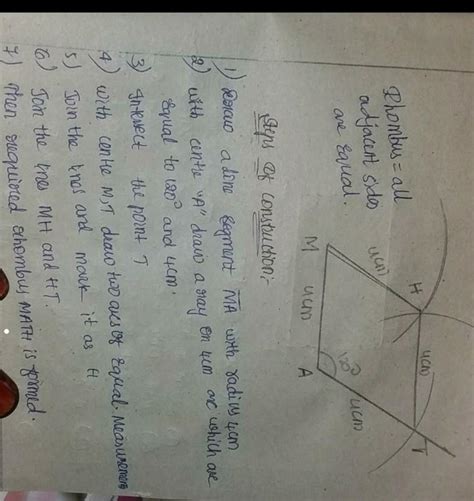 Rhombus = all
adjacent sides
are equal.
H
T
M
A
4cm
4cm
4cm
4cm
120°
Steps of construction:-
1) Draw a line segment MA with radius 4cm
2) with centre "A" draw a ray on 4cm arc which are
equal to 120° and 4cm.
3) Intersect the point T
4) with centre M,T draw two arcs of equal measurement
5) Join the lines and mark it as H
6) Join the lines MH and HT.
7) Then required rhombus MATH is formed.